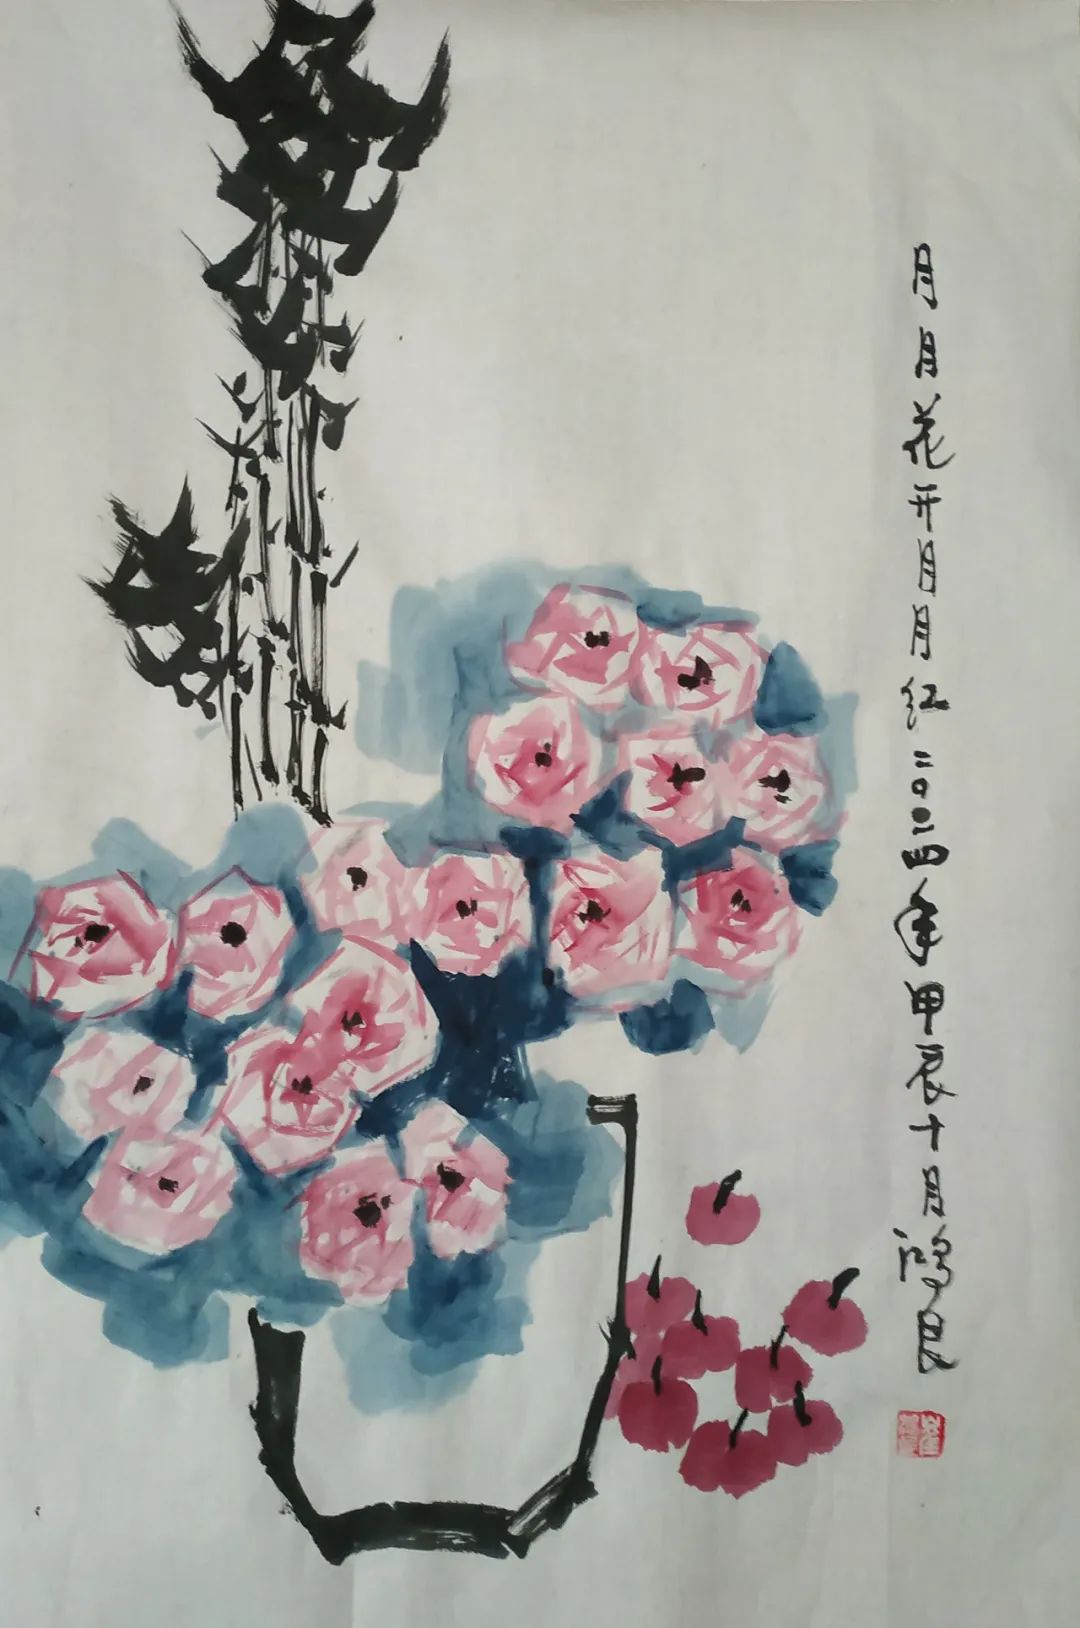 月月花开月月红二〇〇四年甲辰十月鸿昆